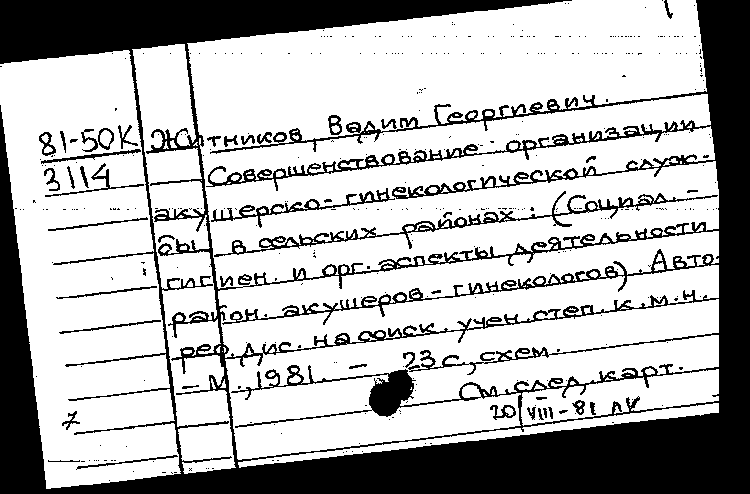 81-50К Житников, Вадим Георгиевич.
3114 Совершенствование организации
акушерско-гинекологической служ-
бы в сельских районах: (Социал.-
гигиен. и орг. аспекты деятельности
район. акушеров-гинекологов). Авто-
реф. дис. на соиск. учен. степ. к.м.н.
- М., 1981. - 23 с., схем.
См. след. карт.
7 20/VIII-81